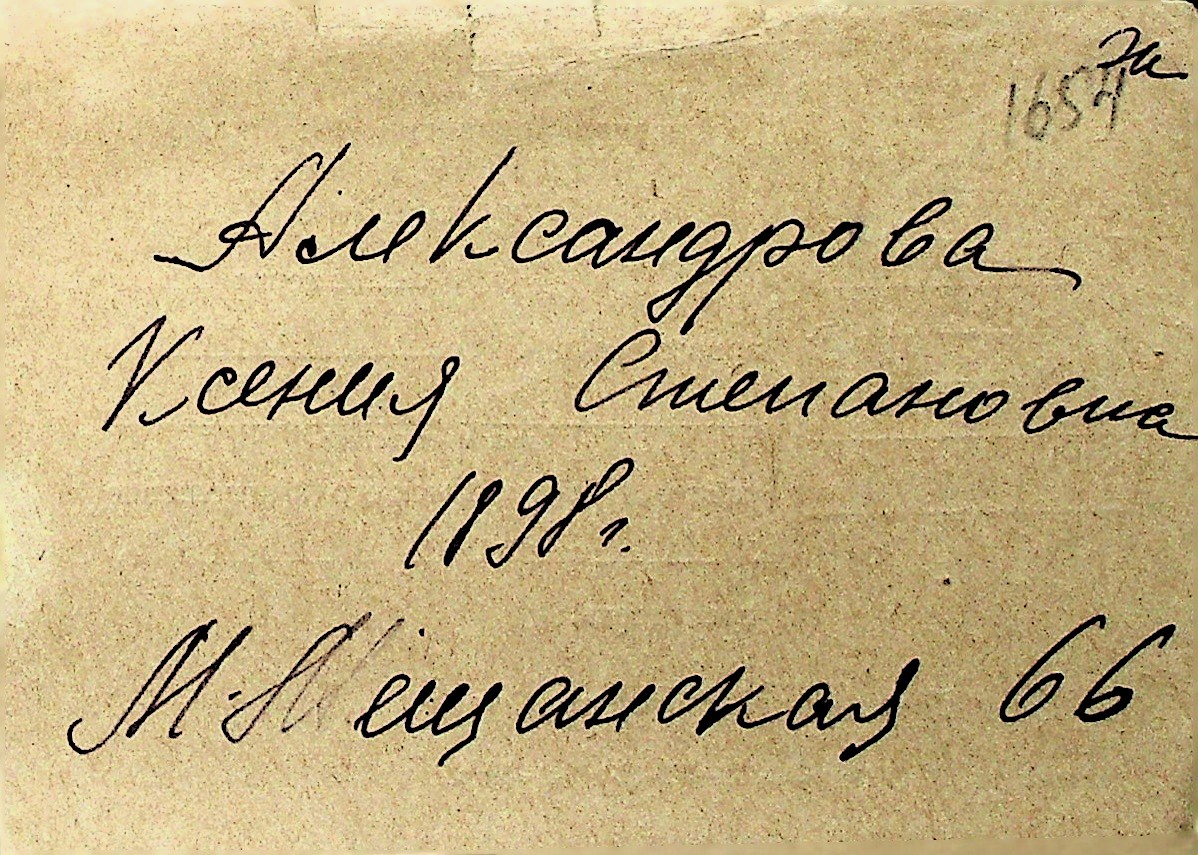 1654
Александрова
Ксения Степановна
1898г.
М. Мещанская 66